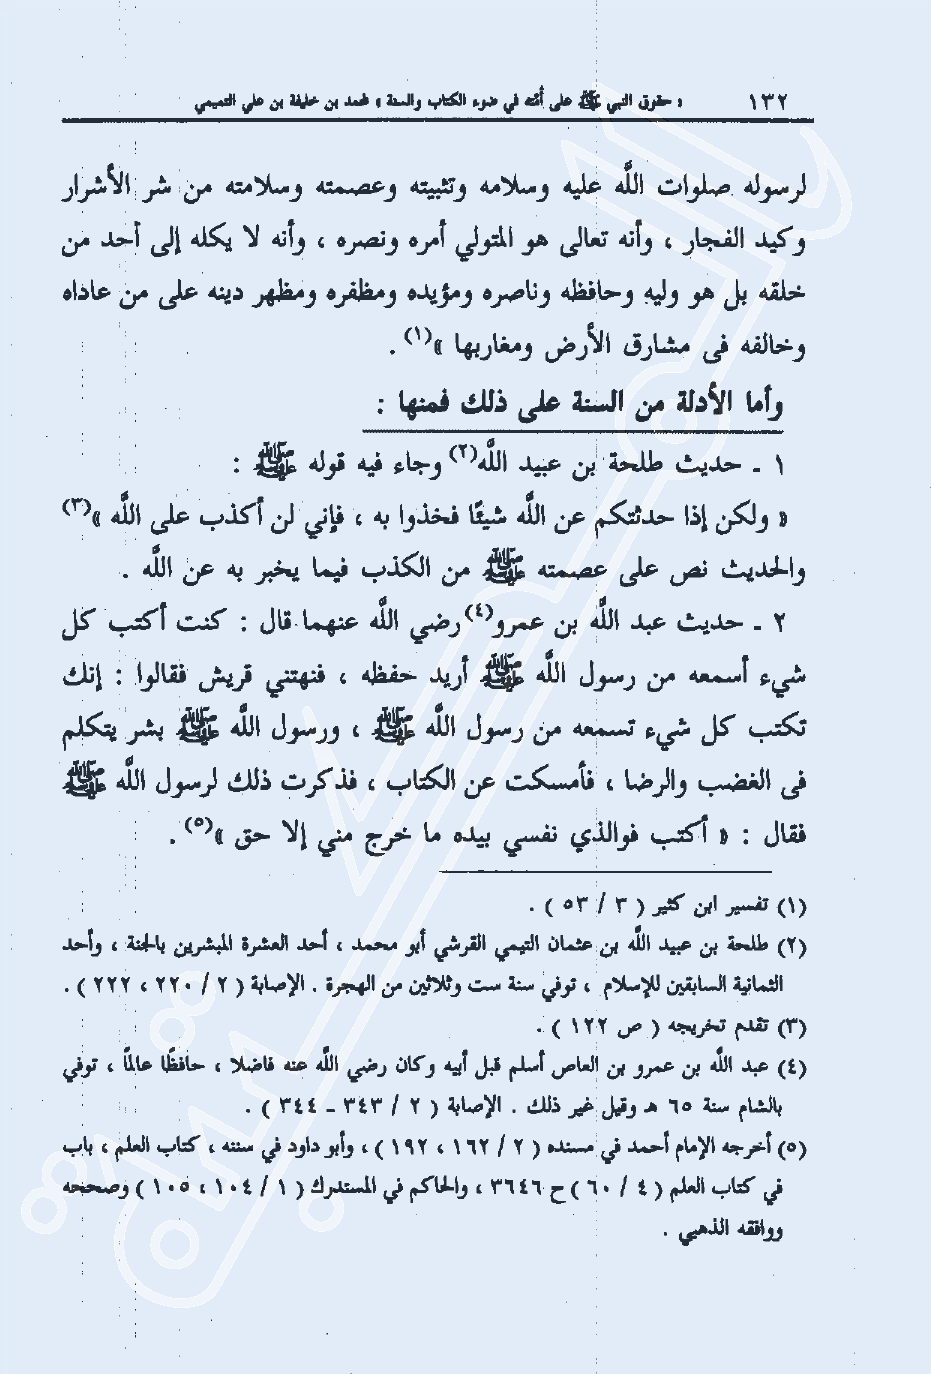 ١٣٢ « حقوق النبي ﷺ على أمته في ضوء الكتاب والسنة » لمحمد بن خليفة بن علي التميمي
لرسوله صلوات اللَّه عليه وسلامه وتثبيته وعصمته وسلامته من شر الأشرار
وكيد الفجار ، وأنه تعالى هو المتولي أمره ونصره ، وأنه لا يكله إلى أحد من
خلقه بل هو وليه وحافظه وناصره ومؤيده ومظفره ومظهر دينه على من عاداه
وخالفه فى مشارق الأرض ومغاربها »(١) .
وأما الأدلة من السنة على ذلك فمنها :
١ ـ حديث طلحة بن عبيد اللَّه(٢) وجاء فيه قوله ﷺ :
« ولكن إذا حدثتكم عن اللَّه شيئًا فخذوا به ، فإني لن أكذب على اللَّه »(٣)
والحديث نص على عصمته ﷺ من الكذب فيما يخبر به عن اللَّه .
٢ ـ حديث عبد اللَّه بن عمرو(٤) رضي اللَّه عنهما قال : كنت أكتب كل
شيء أسمعه من رسول اللَّه ﷺ أريد حفظه ، فنهتني قريش فقالوا : إنك
تكتب كل شيء تسمعه من رسول اللَّه ﷺ ، ورسول اللَّه ﷺ بشر يتكلم
فى الغضب والرضا ، فأمسكت عن الكتاب ، فذكرت ذلك لرسول اللَّه ﷺ
فقال : « أكتب فوالذي نفسي بيده ما خرج مني إلا حق »(٥) .
(١) تفسير ابن كثير ( ٣ / ٥٣ ) .
(٢) طلحة بن عبيد اللَّه بن عثمان التيمي القرشي أبو محمد ، أحد العشرة المبشرين بالجنة ، وأحد
الثمانية السابقين للإسلام ، توفي سنة ست وثلاثين من الهجرة . الإصابة ( ٢ / ٢٢٠ ، ٢٢٢ ) .
(٣) تقدم تخريجه ( ص ١٢٢ ) .
(٤) عبد اللَّه بن عمرو بن العاص أسلم قبل أبيه وكان رضي اللَّه عنه فاضلا ، حافظًا عالمًا ، توفي
بالشام سنة ٦٥ هـ وقيل غير ذلك . الإصابة ( ٢ / ٣٤٣ ـ ٣٤٤ ) .
(٥) أخرجه الإمام أحمد في مسنده ( ٢ / ١٦٢ ، ١٩٢ ) ، وأبو داود في سننه ، كتاب العلم ، باب
في كتاب العلم ( ٤ / ٦٠ ) ح ٣٦٤٦ ، والحاكم في المستدرك ( ١ / ١٠٤ ، ١٠٥ ) وصححه
ووافقه الذهبي .